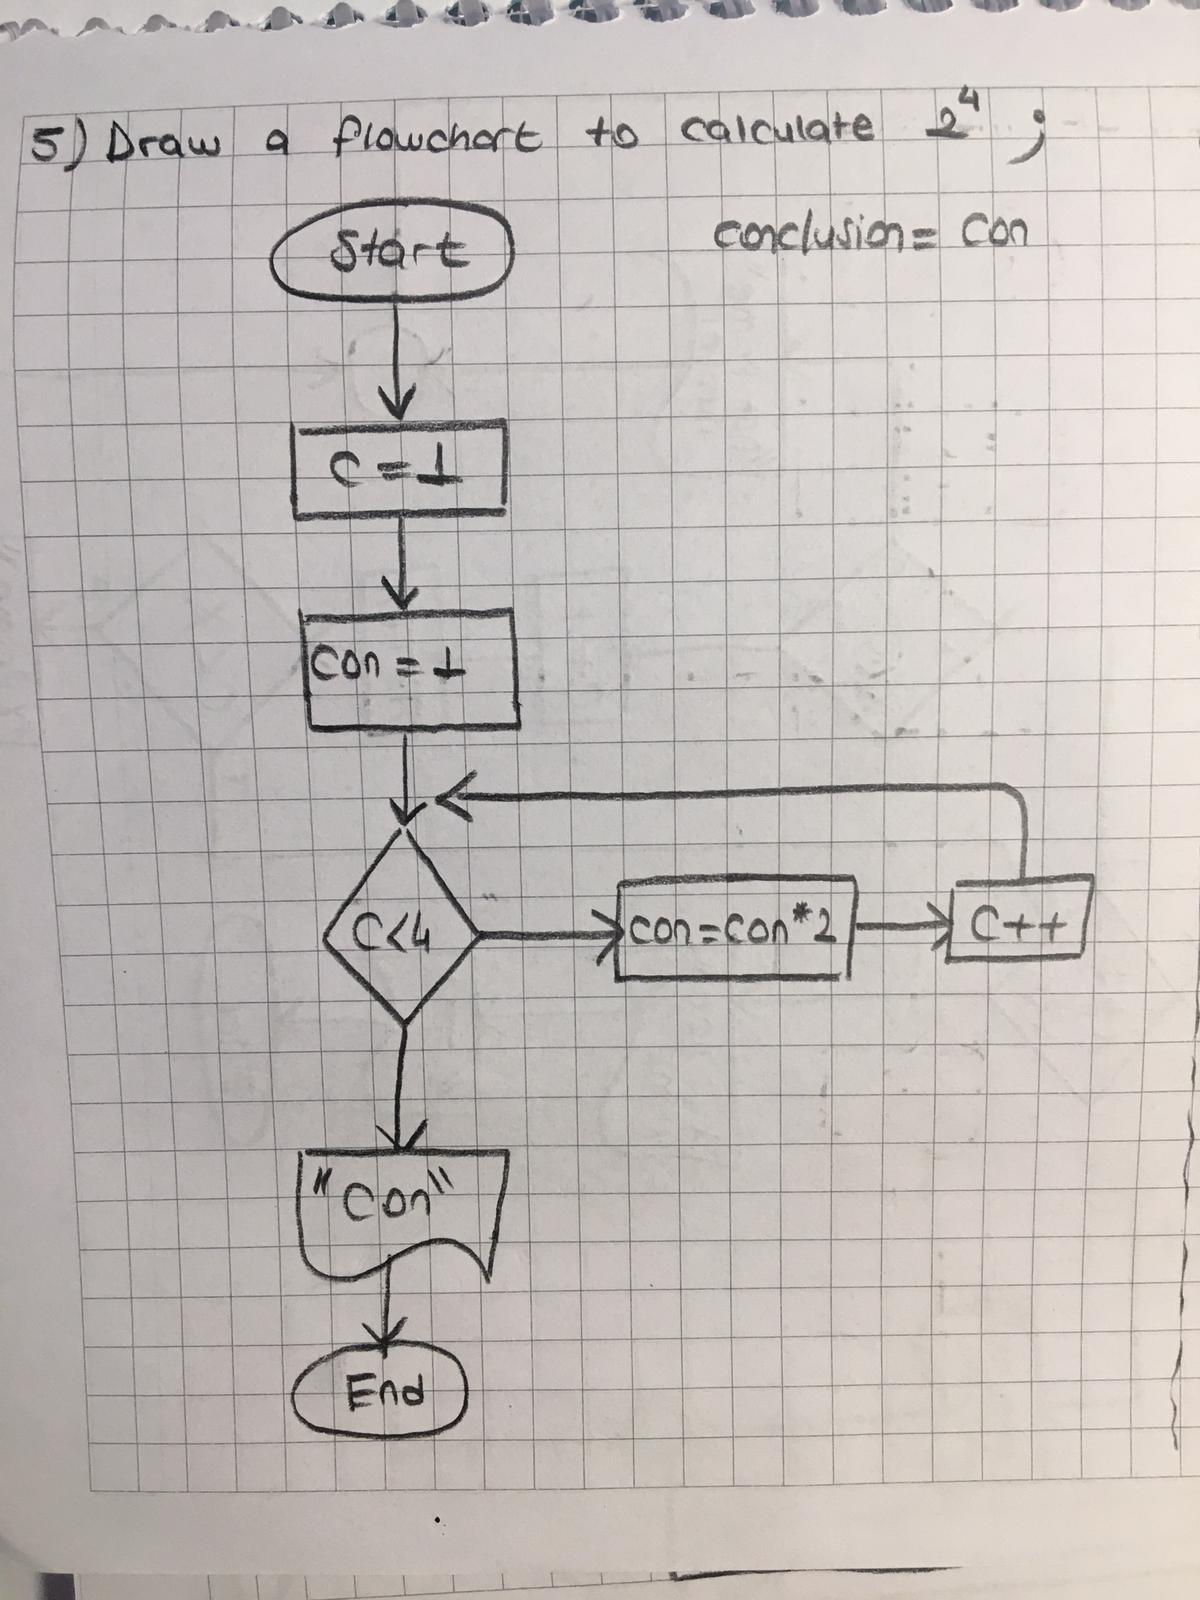 5) Draw a flowchart to calculate 2⁴ ;
conclusion = con
Start
C = 1
con = 1
C<4
con=con*2
C++
"con"
End